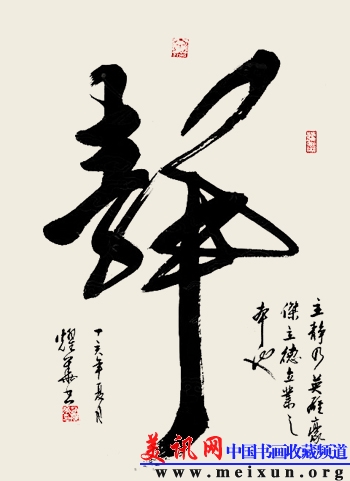 静
主静乃英雄豪
傑立德立業之
本也
丁亥年夏月
燿華书
美讯网
中国书画收藏频道
www.meixun.org